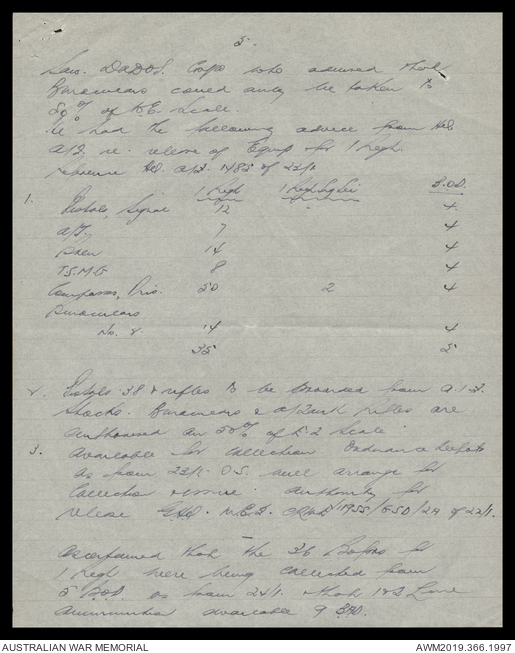 5.
Saw. DADOS. Corps who advised that
Binoculars could only be taken to
50% of W.E. Scale.
He had the following advice from HQ
A/F. re. release of Equip for 1 Regt.
reference HQ. A/F. 1485 of 22/1
1. 1 Regt 1 Regt Sig Sec B.O.D.
Pistols, Signal 12 - 4
A/T. 7 4
Bren 14 4
T.S.M.G 8 4
Compasses, Pris. 50 2 4
Binoculars
No. 2. 14 4
35 5
2. Pistols .38 & rifles to be provided from A.I.F.
stocks. Binoculars & A/Tank Rifles are
authorised on 50% of Scale
3. available for collection Ordnance Depots
as from 22/1. O.S. will arrange for
collection Authority for
release GHQ. M.E.F. 11955/ of 22/1.
Ascertained that the 36 Bofors for
1 Regt were being collected from
5 B.O.D. as from 24/1. & that
ammunition available 9 BAD.
AUSTRALIAN WAR MEMORIAL
AWM2019.366.1997